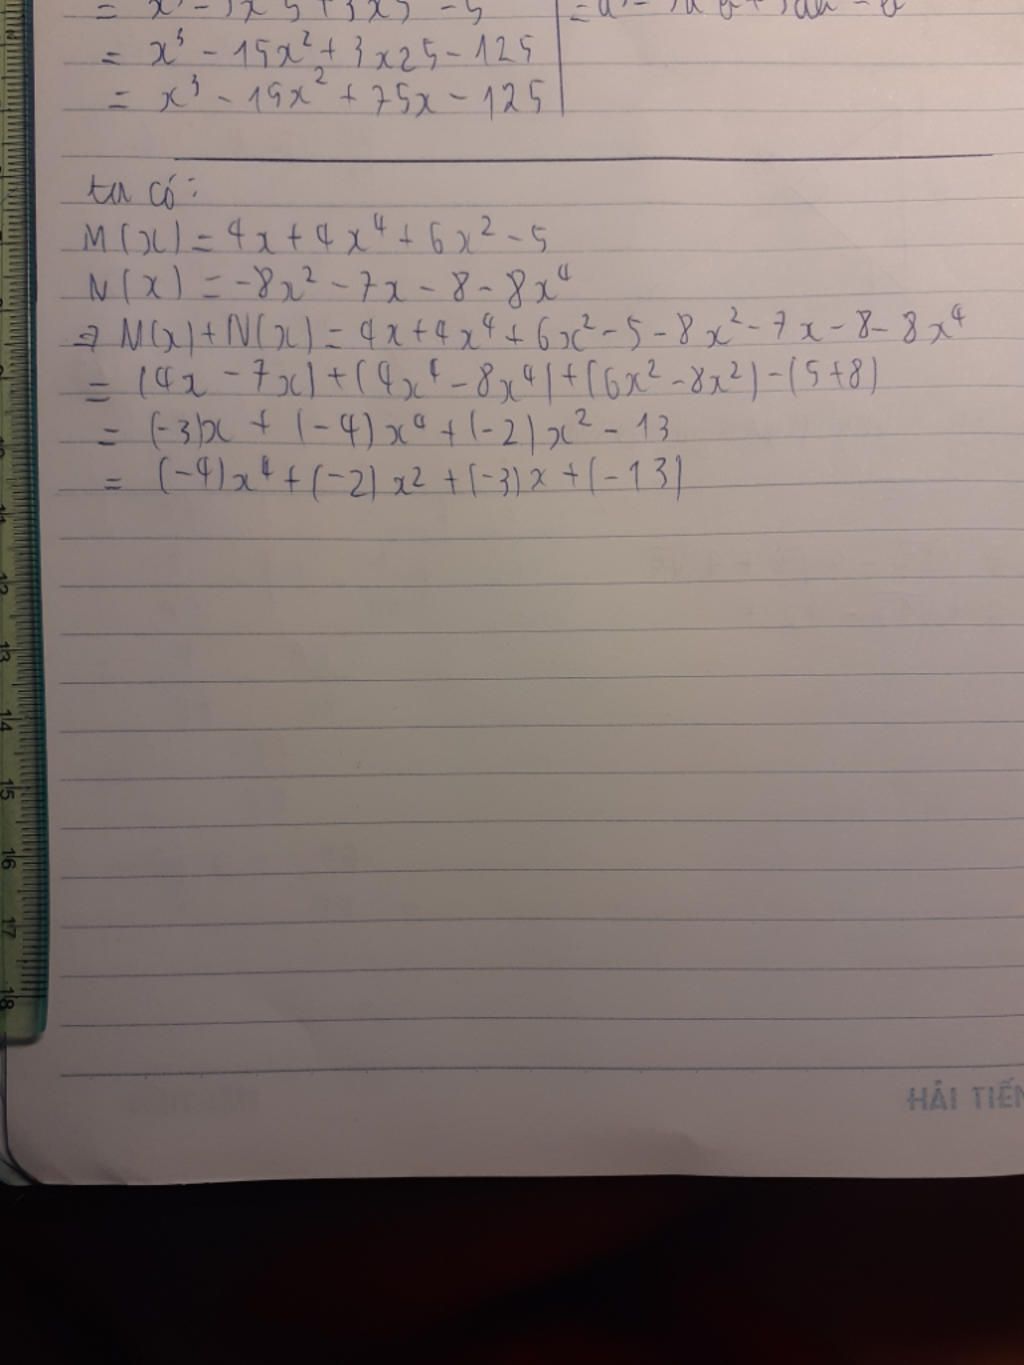 = x³ - 15x² + 3x25 - 125
= x³ - 15x² + 75x - 125
ta có:
M(x) = 4x + 4x⁴ + 6x² - 5
N(x) = -8x² - 7x - 8 - 8x⁴
⇒ M(x) + N(x) = 4x + 4x⁴ + 6x² - 5 - 8x² - 7x - 8 - 8x⁴
= (4x - 7x) + (4x⁴ - 8x⁴) + (6x² - 8x²) - (5 + 8)
= (-3)x + (-4)x⁴ + (-2)x² - 13
= (-4)x⁴ + (-2)x² + (-3)x + (-13)
11
12
13
14
15
16
17
18
HẢI TIẾN